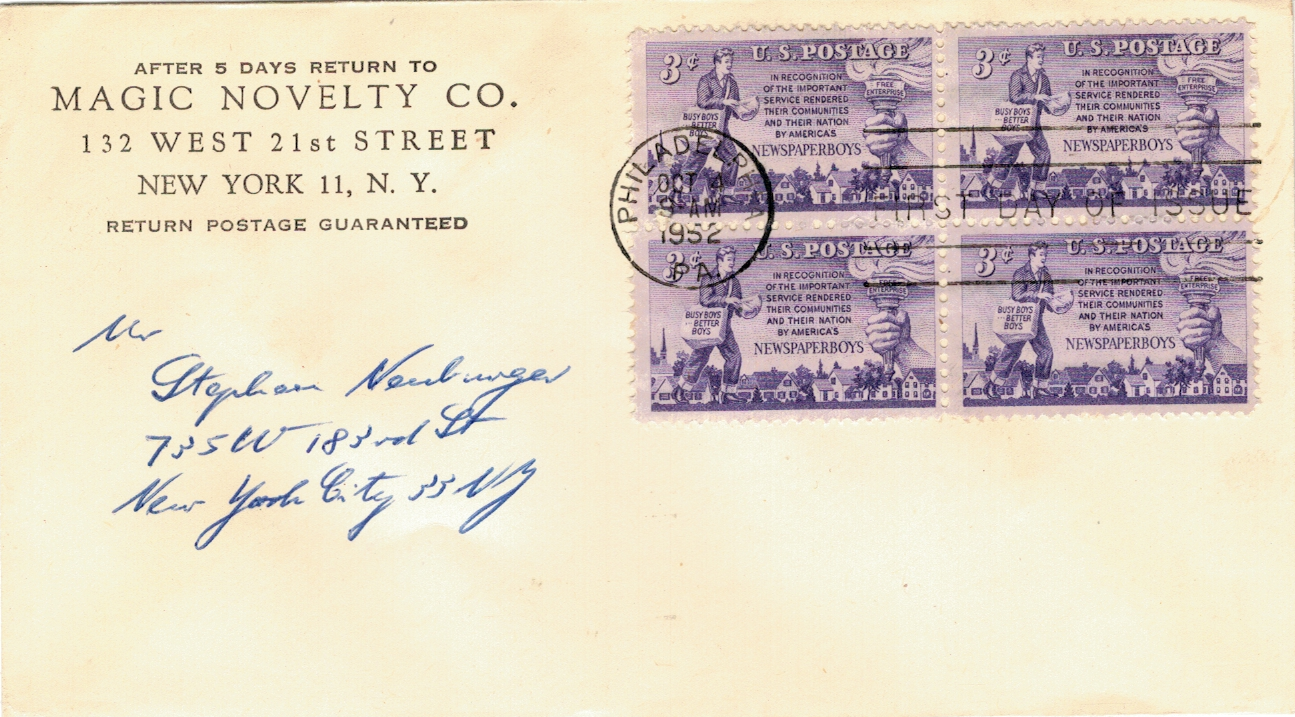 AFTER 5 DAYS RETURN TO
MAGIC NOVELTY CO.
132 WEST 21st STREET
NEW YORK 11, N. Y.
RETURN POSTAGE GUARANTEED
Mr
Stephan Neuburger
735 W 183rd St
New York City 33 NY
3¢ U.S. POSTAGE
IN RECOGNITION
OF THE IMPORTANT
SERVICE RENDERED
THEIR COMMUNITIES
AND THEIR NATION
BY AMERICA'S
NEWSPAPERBOYS
BUSY BOYS
...BETTER
BOYS
FREE
ENTERPRISE
3¢ U.S. POSTAGE
IN RECOGNITION
OF THE IMPORTANT
SERVICE RENDERED
THEIR COMMUNITIES
AND THEIR NATION
BY AMERICA'S
NEWSPAPERBOYS
BUSY BOYS
...BETTER
BOYS
FREE
ENTERPRISE
PHILADELPHIA
OCT 4
9 AM
1952
PA.
FIRST DAY OF ISSUE
3¢ U.S. POSTAGE
IN RECOGNITION
OF THE IMPORTANT
SERVICE RENDERED
THEIR COMMUNITIES
AND THEIR NATION
BY AMERICA'S
NEWSPAPERBOYS
BUSY BOYS
...BETTER
BOYS
FREE
ENTERPRISE
3¢ U.S. POSTAGE
IN RECOGNITION
OF THE IMPORTANT
SERVICE RENDERED
THEIR COMMUNITIES
AND THEIR NATION
BY AMERICA'S
NEWSPAPERBOYS
BUSY BOYS
...BETTER
BOYS
FREE
ENTERPRISE